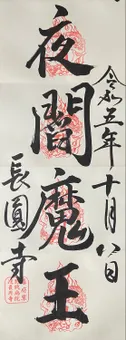 令和五年十月八日
夜閻魔王
長圓寺